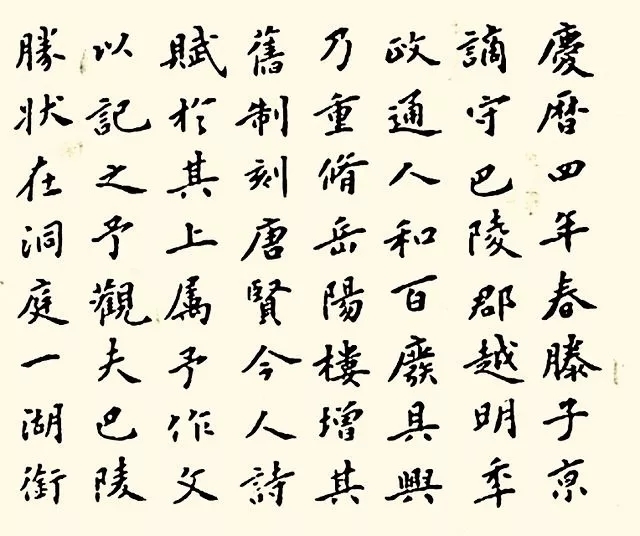 慶曆四年春滕子京
謫守巴陵郡越明年
政通人和百廢具興
乃重脩岳陽樓增其
舊制刻唐賢今人詩
賦於其上屬予作文
以記之予觀夫巴陵
勝狀在洞庭一湖銜